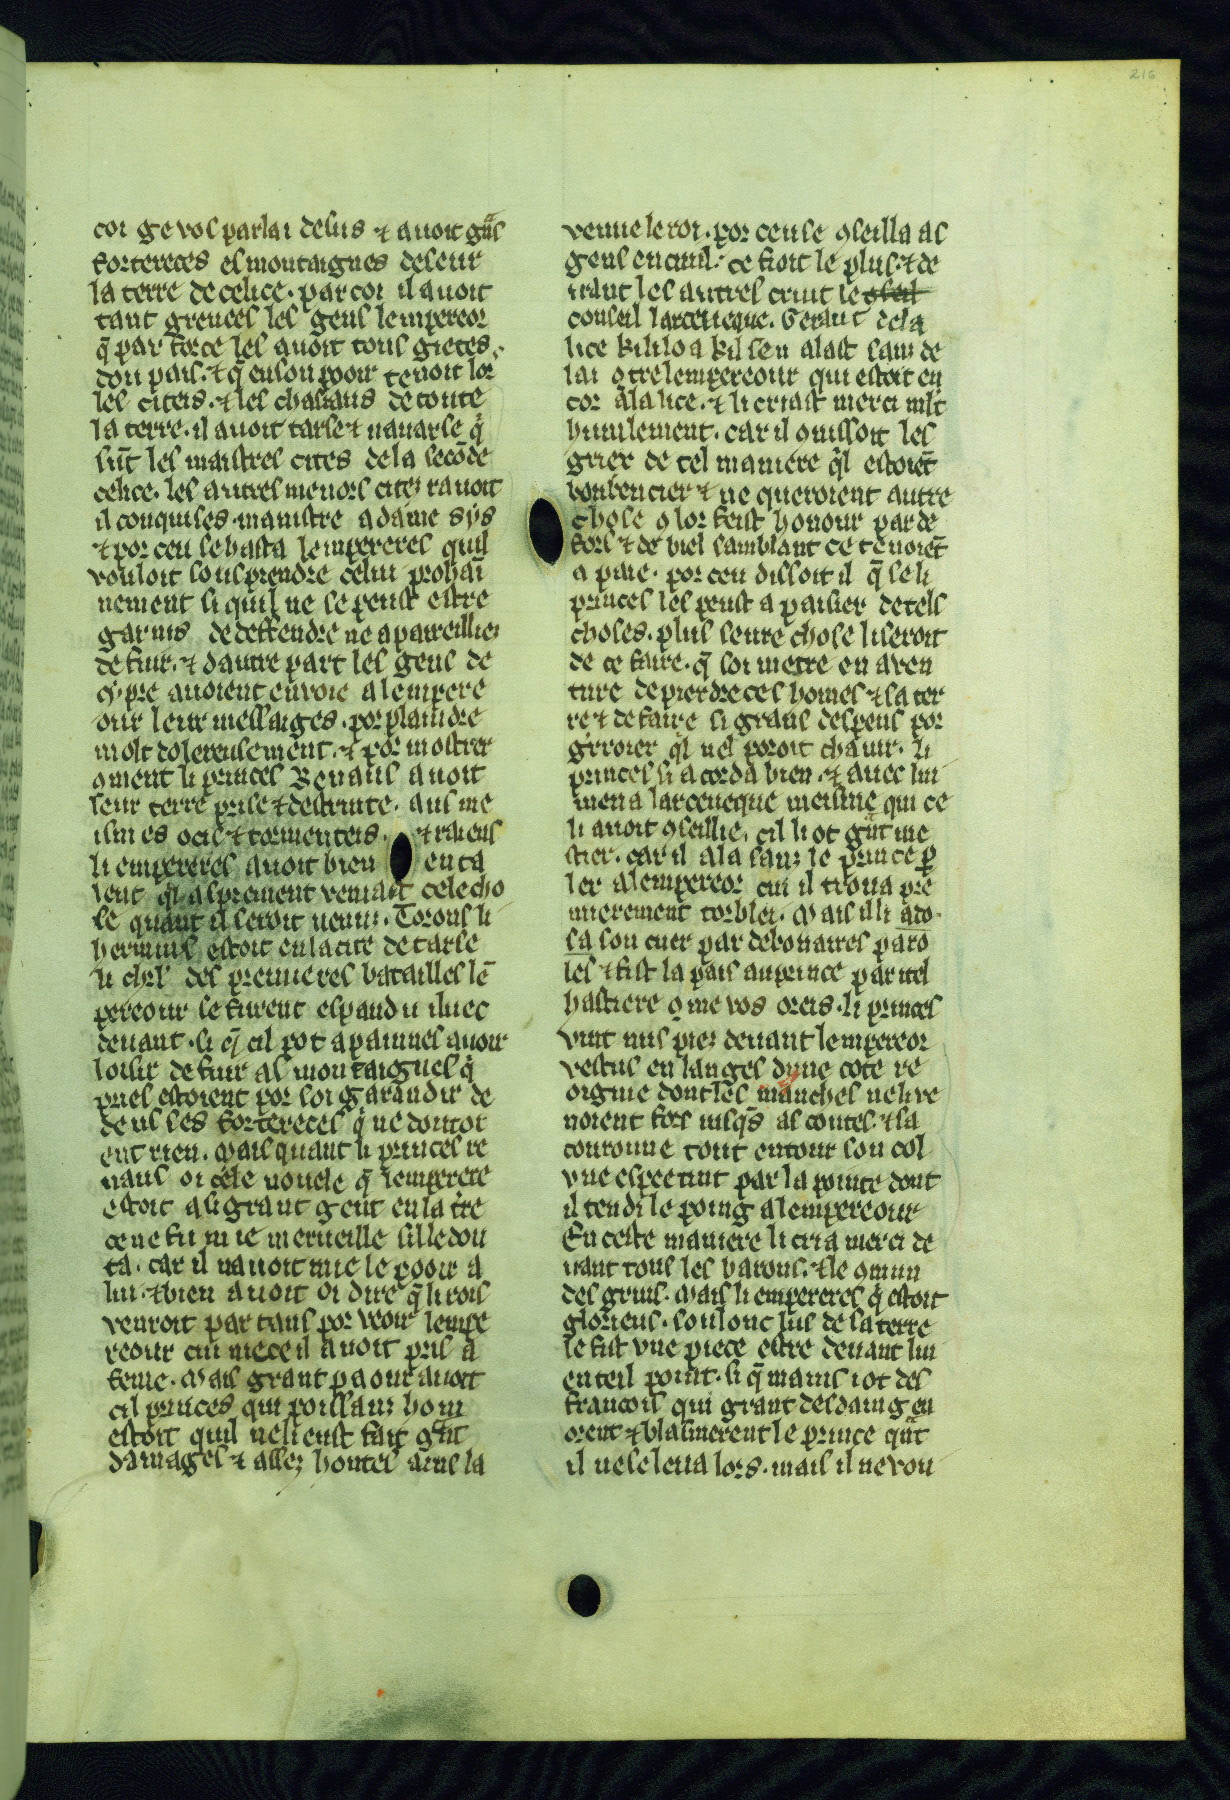 216
coi ge vos parlai desus ⁊ auoit gͣns
fortereces es montaignes deseur
la terre de celice. par coi il auoit
tant greuees les gens lempereor
q̄ par force les auoit tous gietes
dou pais. ⁊ q̄ en son pooir tenoit lor
les citeis. ⁊ les chastiaus de toute
la terre. il auoit tarse ⁊ nauarse q̇
sūt les maistres cites de la secōde
celice. les autres menors citez rauoit
il conquises. mamistre adame sys
⁊ por ceu se hasta lempereres quil
vouloit sousprendre celui prohai
nement si quil ne se peust estre
garnis de deffendre ne apareilliez
de fuir. ⁊ dautre part les gens de
cypre auoient enuoie a lempere
our leur messaiges. por plaindre
molt dolereusement. ⁊ por mostrer
9ment li princes Renaus auoit
leur terre prise ⁊ destruite. aus me
ismes ocis ⁊ tormenteis. ⁊ raiens
li empereres auoit bien en ta
lent q̇l asprement veniast cele cho
se quant il seroit uenus. Torous li
hermins estoit en la cite de tarse
u chrl' des premieres batailles lē
pereour se furent espandu iluec
deuant. si q̄ cil pot a painnes auoir
loisir de fuir as montaignes q̇
pres estoient por soi garandir de
dens ses fortereces q̇ ne doutoi
ent rien. Mais quant li princes re
naus oi cele nouele q̄ lemperere
estoit a si grant gent en la t̄re
ce ne fu mie merueille sil le dou
ta. car il nauoit mie le pooir a
lui. ⁊ bien auoit oi dire q̄ li rois
venroit par tans por veoir lempe
reour cui niece il auoit pris a
feme. Mais grant paour auoit
cil princes qui poissanz hom
estoit quil neli eust fait gͣnt
damages ⁊ assez hontes ains la
venue le roi. por ceu se 9seilla as
gens en cui il se fioit le plus. ⁊ de
uant les autres cruit le 9seil
conseil larceueque. Geraut de la
lice ki li loa kil sen alast sanz de
lai 9tre lempereour qui estoit en
cor a la lice. ⁊ li criast merci mlt
humlement. car il 9nissoit les
griex de tel maniere q̇l estoiēt
bonbencier ⁊ ne queroient autre
chose 9 lor feist honour par de
fors ⁊ de biel samblant ce tenoiēt
a paie. por ceu dissoit il q̄ se li
princes les peust apaisier de tels
choses. plus seure chose li seroit
de ce faire. q̄ soi metre en auen
ture de pierdre ces homes ⁊ sa ter
re ⁊ de faire si grans despens por
g̓roier q̇l nel poroit chauir. li
princes si acorda bien. ⁊ auec lui
mena larceueque meisme qui ce
li auoit 9seillie. cil li ot gͣnt me
stier. car il ala sanz le prince p̄
ler a lempereor cui il troua pre
mierement torblei. Mais il li ado
sa son cuer par debonaires paro
les ⁊ fist la pais au prince par itel
hastiere 9me vos oreis. li princes
vint nus piez deuant lempereor
vestus en langes dune cote re
oigne dont les manches ne li ve
noient fors iusqs as coutes. ⁊ la
couronne tout entour son col
vne espee nut par la pointe dont
il tendi le poing a lempereour
En ceste maniere li cria merci de
uant tous les barons. ⁊ le 9mun
des grius. Mais li empereres q̇ estoit
glorieus. soulonc lus de sa terre
le fist vne piece estre deuant lui
en teil point. si q̄ mains i ot des
francois qui grant desdaing en
orent ⁊ blasmerent le prince qͣnt
il ne se leua lors. mais il ne vou